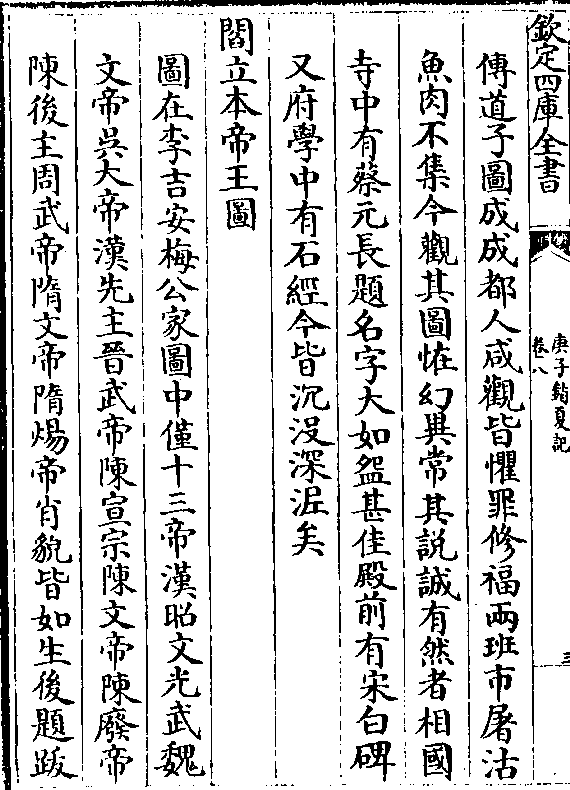 欽定四庫全書
庚子銷夏記
卷八
三
傳道子圖成成都人咸觀皆懼罪修福兩班市屠沽
魚肉不集今觀其圖恠幻異常其說誠有然者相國
寺中有蔡元長題名字大如盌甚佳殿前有宋白碑
又府學中有石經今皆沉没深泥矣
閻立本帝王圖
圖在李吉安梅公家圖中僅十三帝漢昭文光武魏
文帝吳大帝漢先主晉武帝陳宣宗陳文帝陳廢帝
陳後主周武帝隋文帝隋煬帝肖貌皆如生後題跋